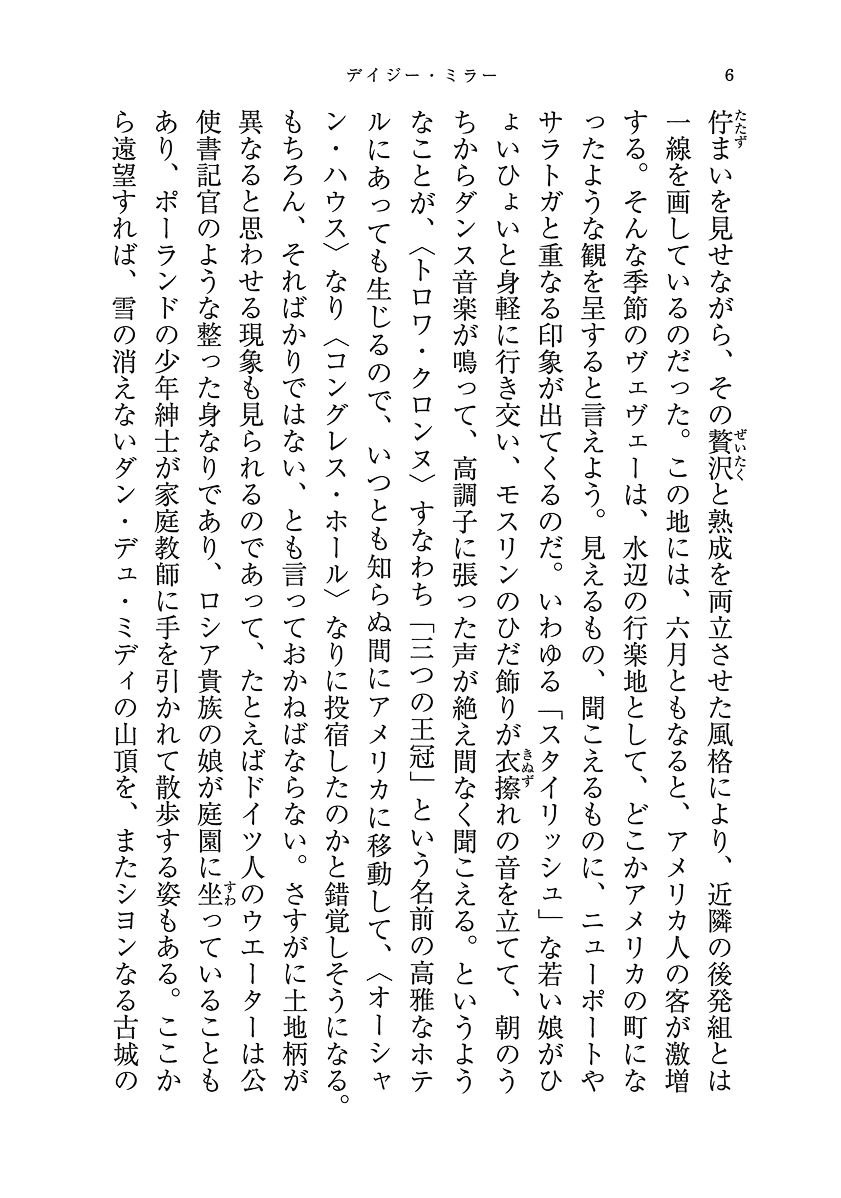 デイジー・ミラー
6
佇まいを見せながら、その贅沢と熟成を両立させた風格により、近隣の後発組とは
一線を画しているのだった。この地には、六月ともなると、アメリカ人の客が激増
する。そんな季節のヴェヴェーは、水辺の行楽地として、どこかアメリカの町にな
ったような観を呈すると言えよう。見えるもの、聞こえるものに、ニューポートや
サラトガと重なる印象が出てくるのだ。いわゆる「スタイリッシュ」な若い娘がひ
ょいひょいと身軽に行き交い、モスリンのひだ飾りが衣擦れの音を立てて、朝のう
ちからダンス音楽が鳴って、高調子に張った声が絶え間なく聞こえる。というよう
なことが、〈トロワ・クロンヌ〉すなわち「三つの王冠」という名前の高雅なホテ
ルにあっても生じるので、いつとも知らぬ間にアメリカに移動して、〈オーシャ
ン・ハウス〉なり〈コングレス・ホール〉なりに投宿したのかと錯覚しそうになる。
もちろん、そればかりではない、とも言っておかねばならない。さすがに土地柄が
異なると思わせる現象も見られるのであって、たとえばドイツ人のウエーターは公
使書記官のような整った身なりであり、ロシア貴族の娘が庭園に坐っていることも
あり、ポーランドの少年紳士が家庭教師に手を引かれて散歩する姿もある。ここか
ら遠望すれば、雪の消えないダン・デュ・ミディの山頂を、またシヨンなる古城の
たたず
ぜいたく
きぬず
すわ